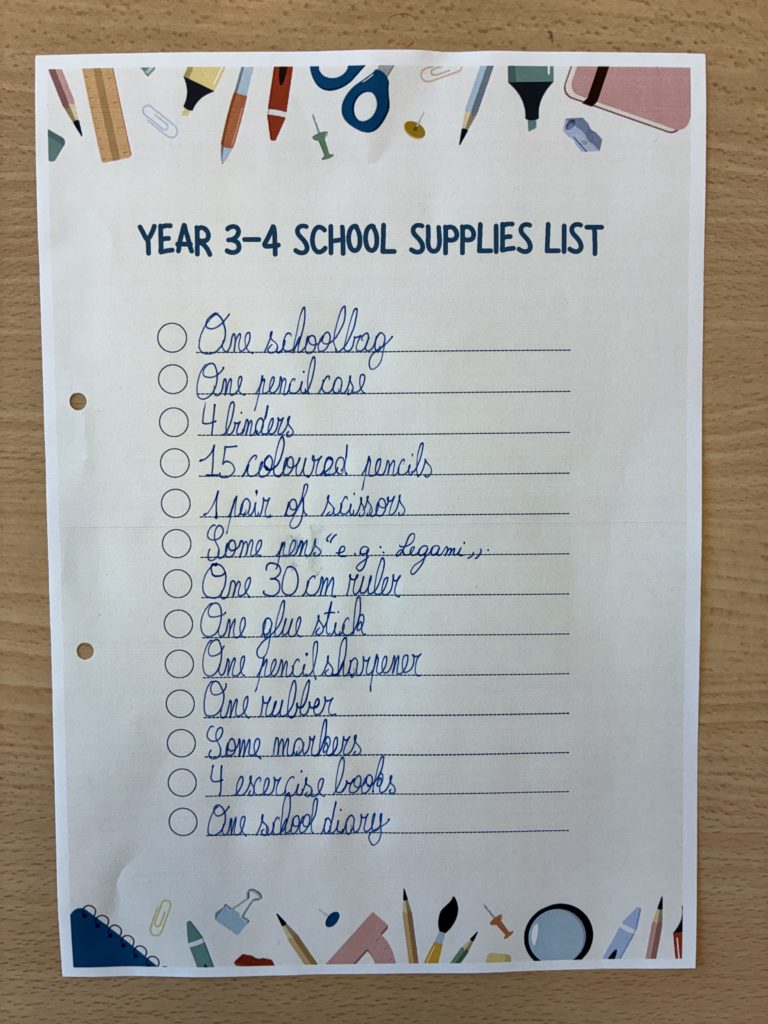 YEAR 3-4 SCHOOL SUPPLIES LIST
One schoolbag
One pencil case
4 binders
15 coloured pencils
1 pair of scissors
Some pens "e.g: Legami".
One 30 cm ruler
One glue stick
One pencil sharpener
One rubber
Some markers
4 exercise books
One school diary